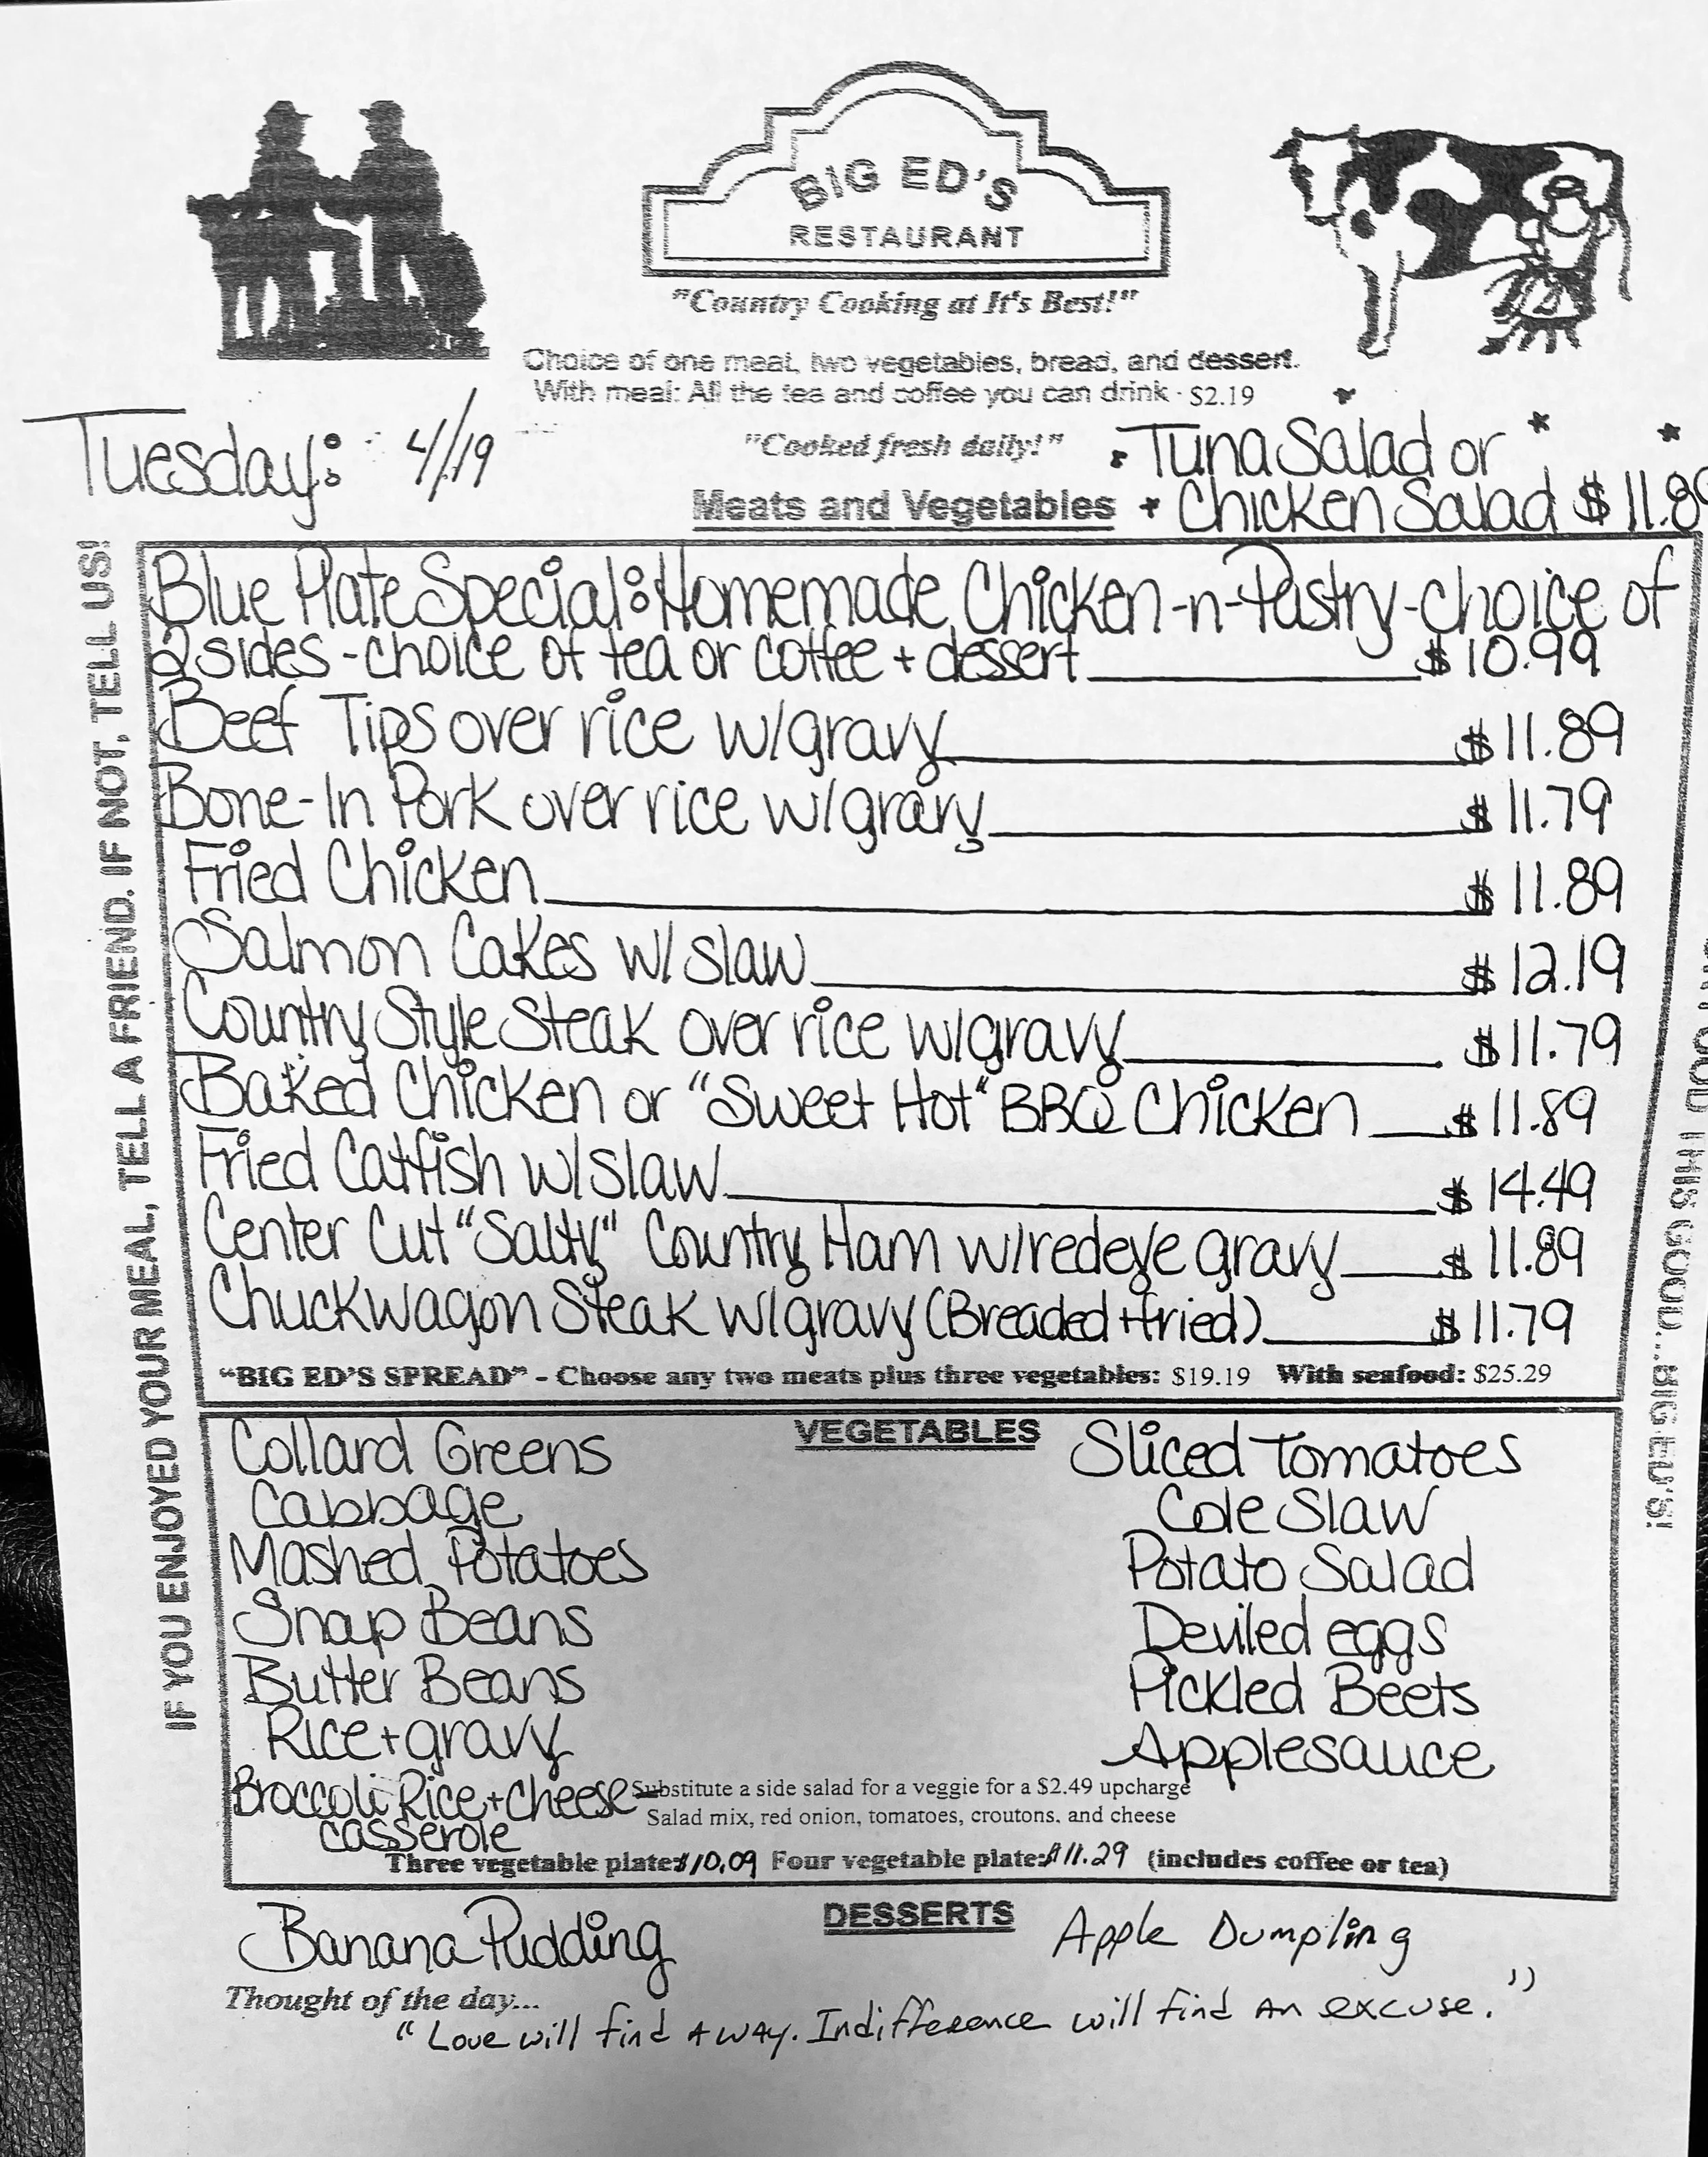 BIG ED'S
RESTAURANT
"Country Cooking at It's Best!"
Choice of one meat, two vegetables, bread, and dessert.
With meal: All the tea and coffee you can drink - $2.19
Tuesday: 4/19
"Cooked fresh daily!"
* Tuna Salad or *
Meats and Vegetables
* Chicken Salad $11.89
Blue Plate Special: Homemade Chicken-n-Pastry-choice of
2 sides - choice of tea or coffee + dessert $10.99
Beef Tips over rice w/gravy $11.89
Bone-In Pork over rice w/gravy $11.79
Fried Chicken $11.89
Salmon Cakes w/ slaw $12.19
Country Style Steak over rice w/gravy $11.79
Baked Chicken or "Sweet Hot" BBQ Chicken $11.89
Fried Catfish w/slaw $14.49
Center Cut "Salty" Country Ham w/redeye gravy $11.89
Chuckwagon Steak w/gravy (Breaded + fried) $11.79
"BIG ED'S SPREAD" - Choose any two meats plus three vegetables: $19.19 With seafood: $25.29
VEGETABLES
Collard Greens
Cabbage
Mashed Potatoes
Snap Beans
Butter Beans
Rice + gravy
Broccoli Rice + cheese
casserole
Sliced Tomatoes
Cole Slaw
Potato Salad
Deviled eggs
Pickled Beets
Applesauce
Substitute a side salad for a veggie for a $2.49 upcharge
Salad mix, red onion, tomatoes, croutons, and cheese
Three vegetable plate: $10.09 Four vegetable plate: $11.29 (includes coffee or tea)
DESSERTS
Banana Pudding
Apple Dumpling
Thought of the day...
"Love will find a way. Indifference will find an excuse."
IF YOU ENJOYED YOUR MEAL, TELL A FRIEND. IF NOT, TELL US!
THIS GOOD...BIG ED'S!